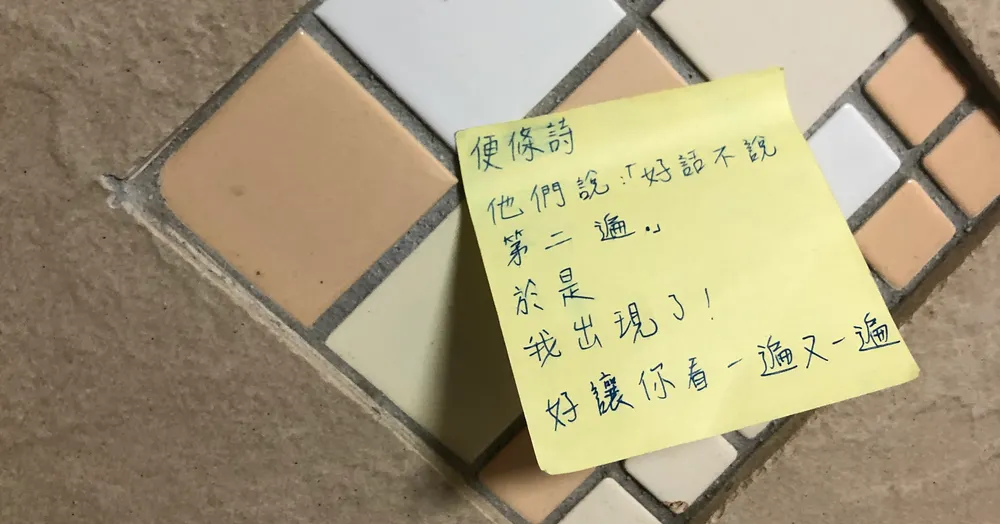 便條詩
他們說:「好話不說
第二遍.」
於是
我出現了!
好讓你看一遍又一遍